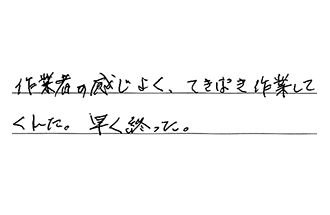 作業者の感じよく、てきぱき作業して
くれた。早く終った。